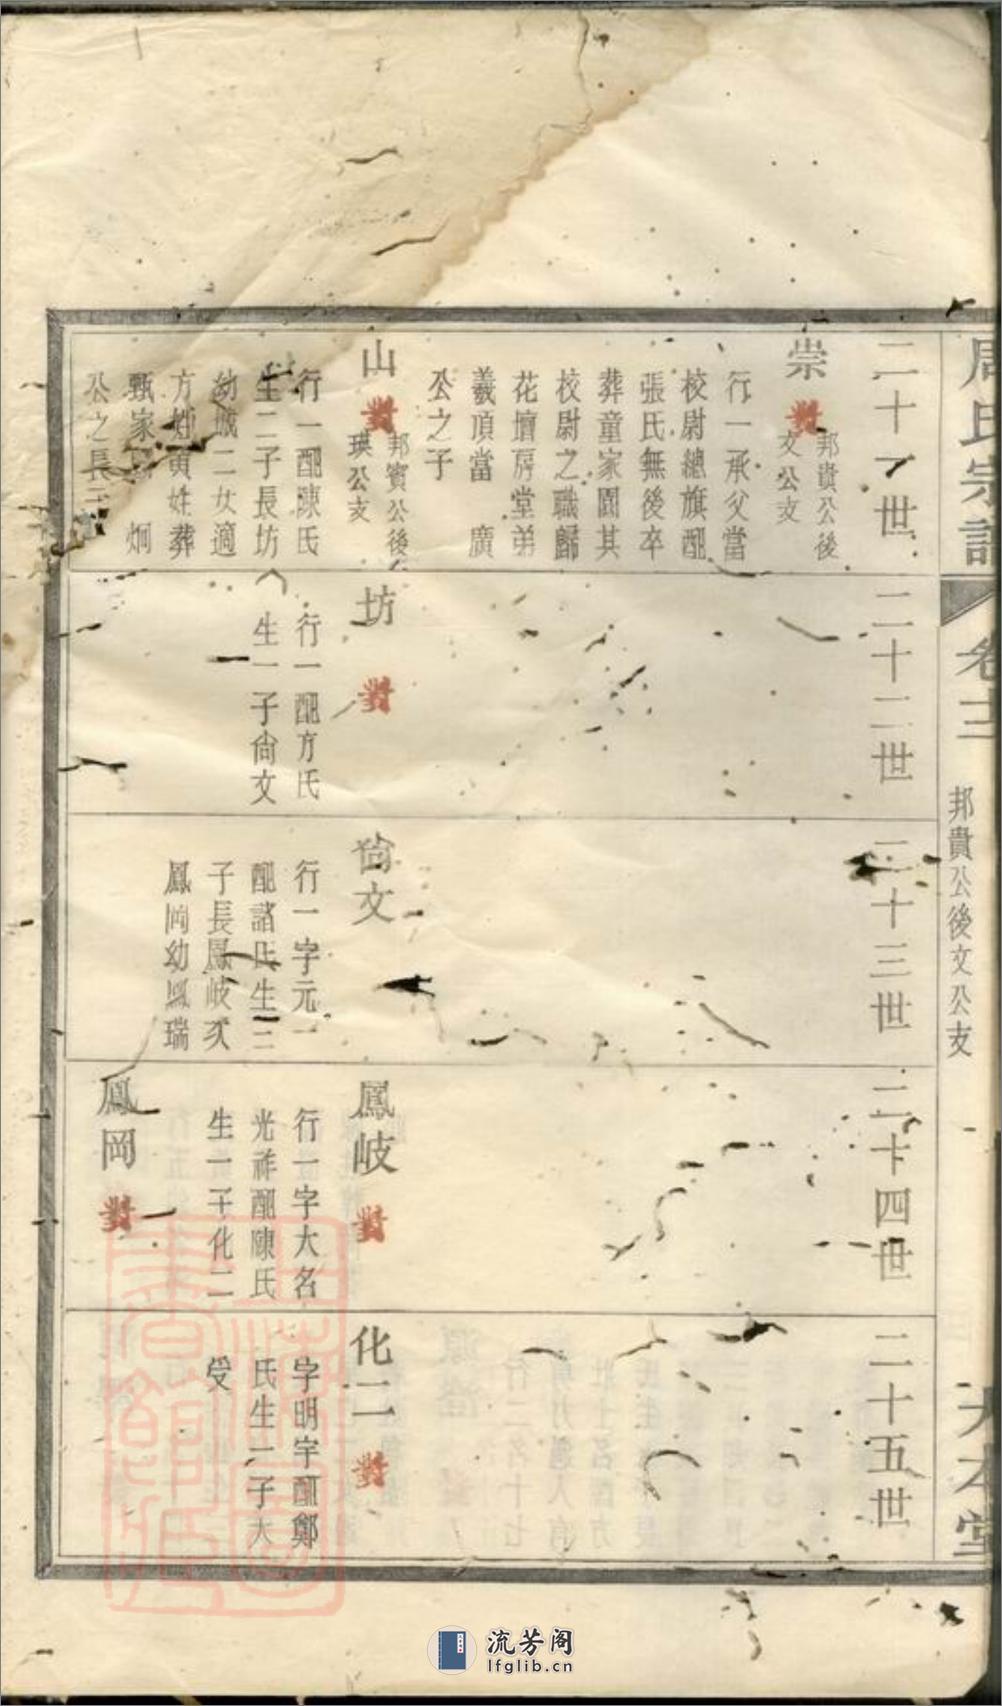 周氏宗譜
卷十二
邦貴公後文公支
大本堂
二十一世
崇
邦貴公後
文公支
行一承父當
校尉總旗配
張氏無後卒
葬童家園其
校尉之職歸
花壇房堂弟
羲頂當 廣
公之子
山
邦賓公後
瑛公支
行一配陳氏
生二子長坊
幼城二女適
方姚黃姓葬
甄家 炯
公之長子
二十二世
坊
行一配方氏
生一子尙文
二十三世
尙文
行一字元一
配諸氏生三
子長鳳岐次
鳳岡幼鳳瑞
二十四世
鳳岐
行一字大名
光祚配陳氏
生一子化二
鳳岡
二十五世
化二
字明宇配鄭
氏生二子大
受
流芳阁
lfglib.cn